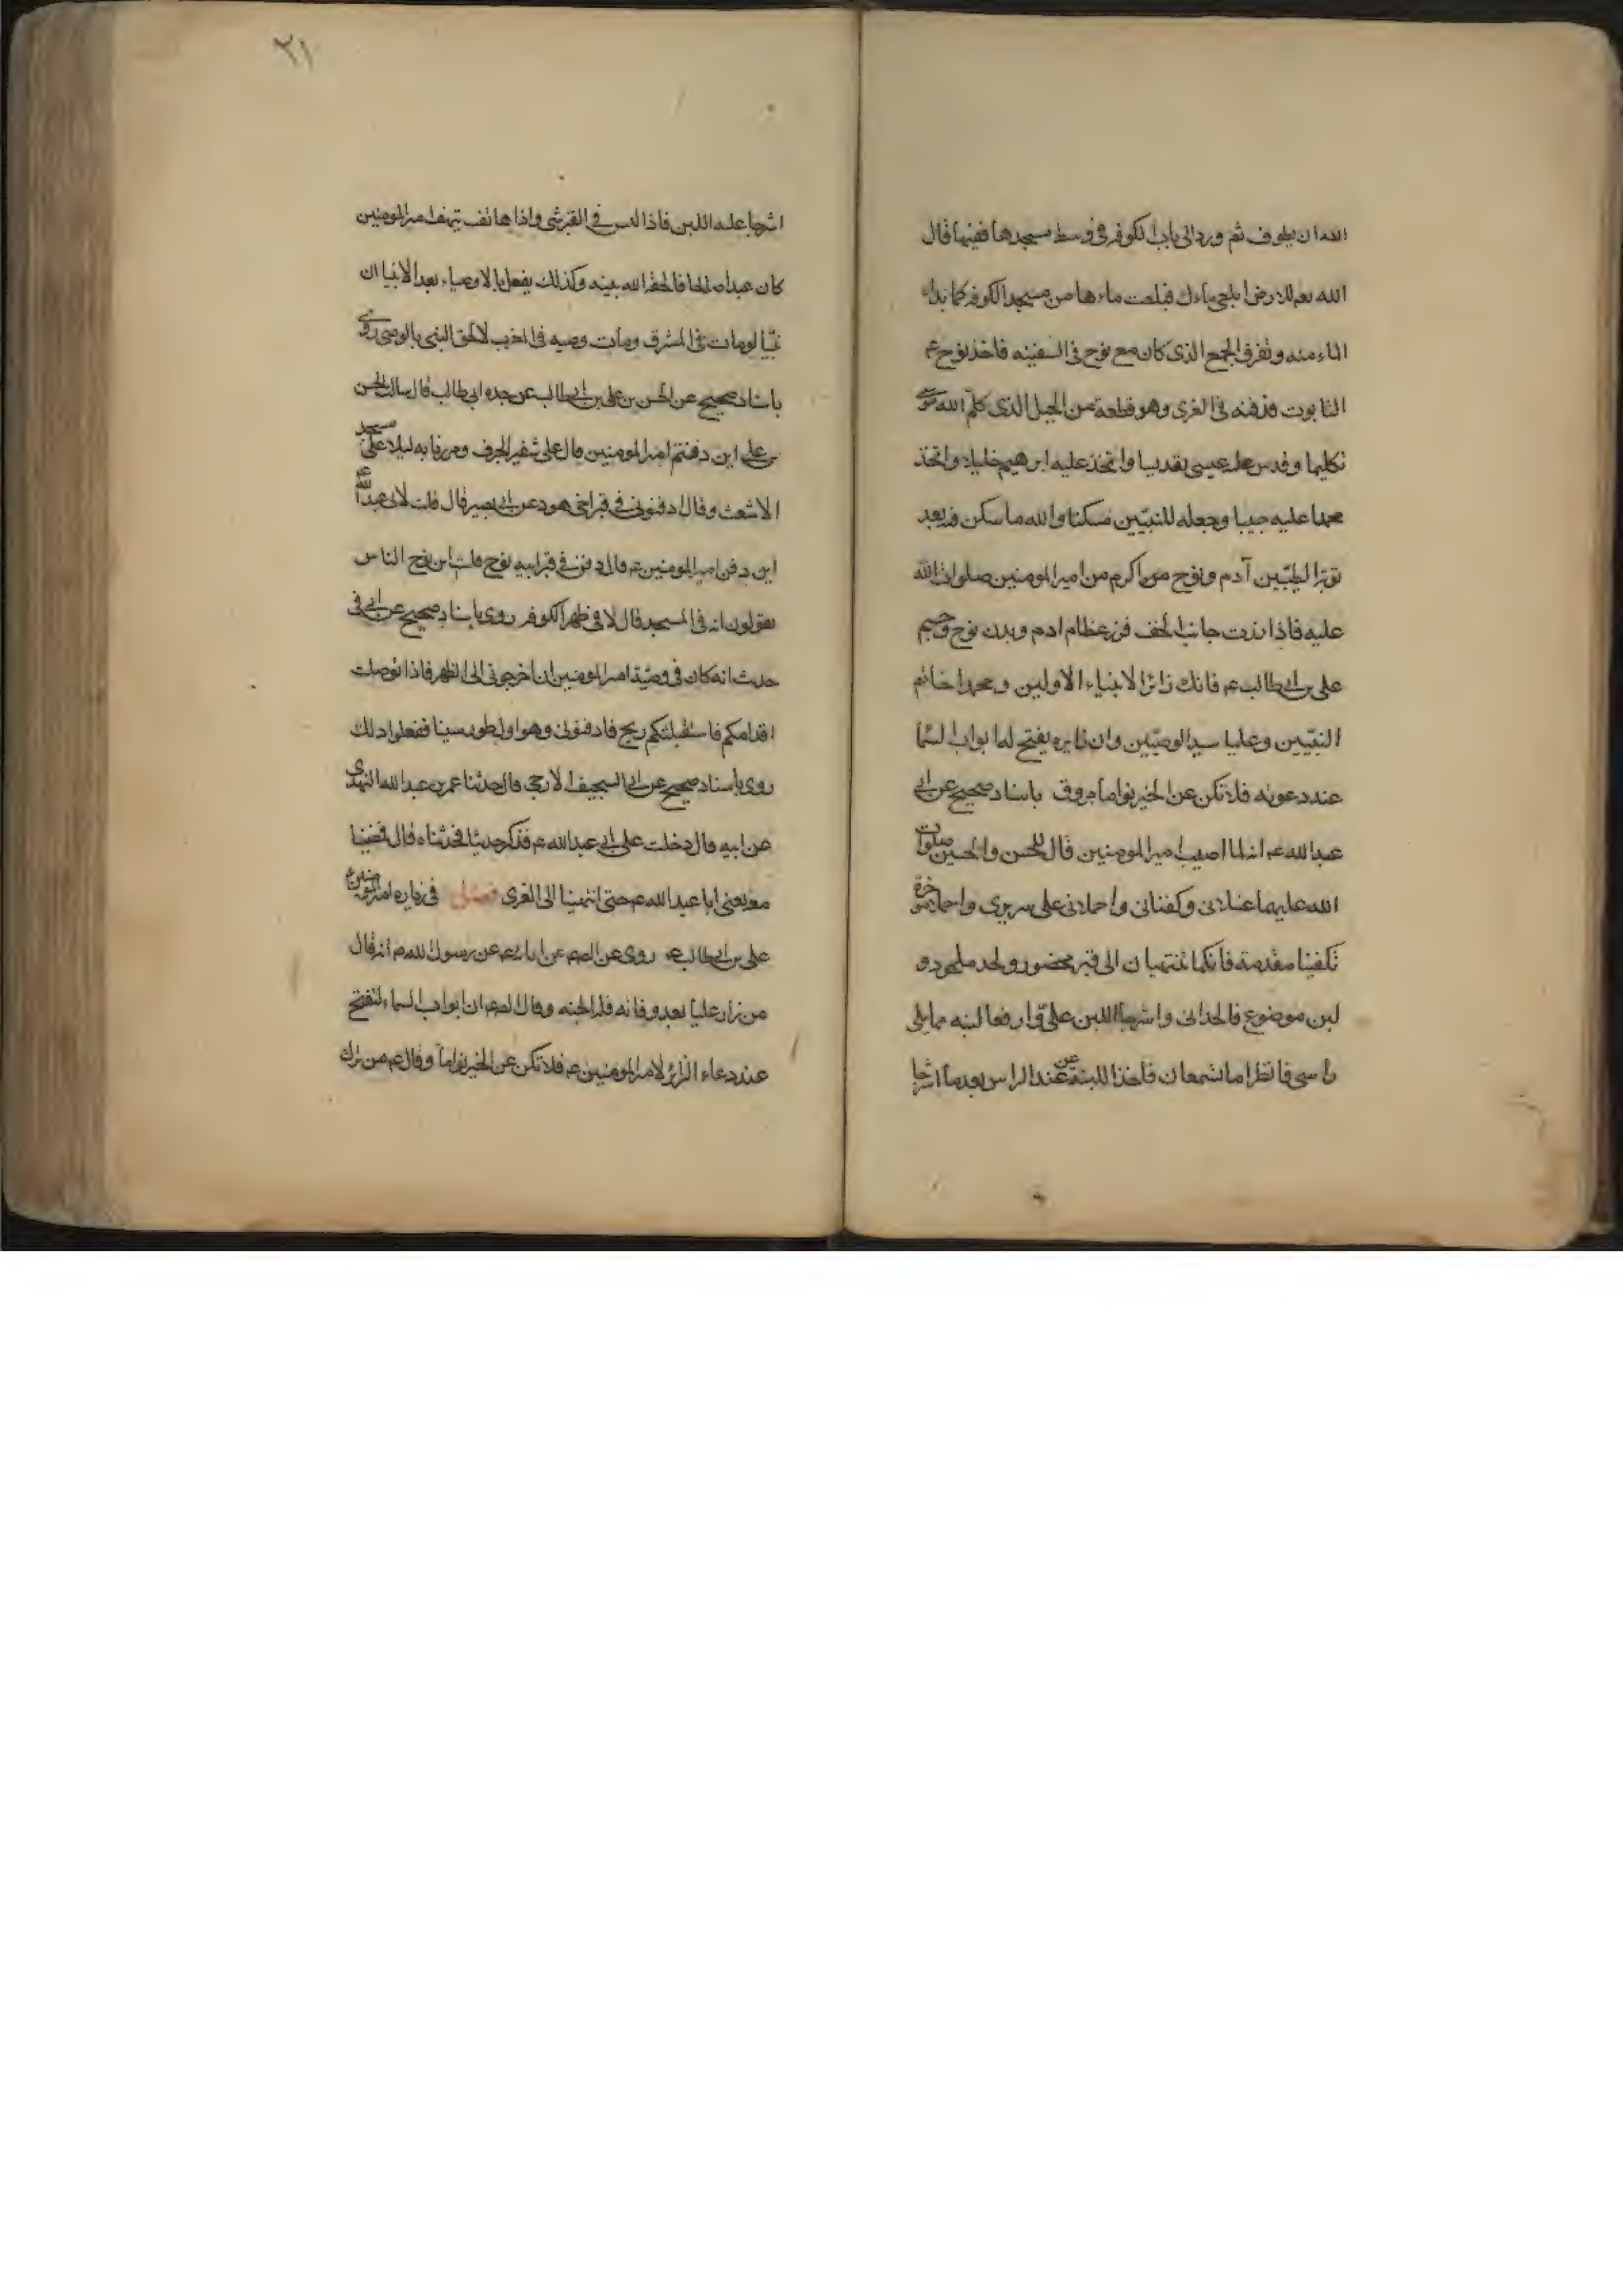 الله ان يطوف ثم ورد الى باب الكوفه فى وسط مسجدها ففيها قال
الله تعم للارض ابلعى ماءك فبلعت ماءها من مسجد الكوفه كما بداء
الماء منه وتفرق الجمع الذى كان مع نوح فى السفينه فاخذ نوح عم
التابوت فدفنه فى الغرى وهو قطعة من الجبل الذى كلم الله موسى
تكليما وقدس عليه عيسى تقديسا واتخذ عليه ابرهيم خليلا واتخذ
محمدا عليه حبيبا وجعله للنبيّين مسكنا والله ما سكن فيه بعد
ابويه الطيّبين آدم ونوح من اكرم من امير المومنين صلوات الله
عليه فاذا زرت جانب النجف فزر عظام ادم وبدن نوح وجسم
على بن ابى طالب عم فانك زائرا لانبياء الاولين ومحمدا خاتم
النبيّين وعليا سيد الوصيّين وان زايره يفتح له ابواب السما
عند دعوته فلا تكن عن الخير نواما مروق باسناد صحيح عن ابى
عبد الله عم انه لما اصيب امير المومنين قال للحسن والحسين صلوات
الله عليهما غسلانى وكفنانى واحملانى على سريرى واحملا موخره
تكفينا مقدمه فانكما تنتهيان الى قبر محفور ولحد ملحود و
لبن موضوع فالحدانى واشرجا اللبن علىّ وارفعا لبنه مما يلى
راسى فانظرا ما تسمعان فاخذا اللبنة من عند الراس بعد ما اشرجا
٢١
اشرجا عليه اللبن فاذا ليس فى القبر شى واذا هاتف يهتف امير المومنين
كان عبدا صالحا فالحقه الله بنبيه وكذلك يفعل بالاوصياء بعد الانبيا ان
نبيّا لو مات فى المشرق ومات وصيه فى المغرب لالحق النبى بالوصى روى
باسناد صحيح عن الحسن بن على بن ابى طالب عن جده ابى طالب قال سالت الحسن
بن على اين دفنتم امير المومنين قال على شفير الجرف ومررنا به ليلا على مسجد
الاشعث وقال ادفنونى فى قبر اخى هود عن ابى بصير قال قلت لابى عبد الله عم
اين دفن امير المومنين عم قال دفن فى قبر ابيه نوح قلت اين نوح الناس
يقولون انه فى المسجد قال لا فى ظهر الكوفه روى باسناد صحيح عن ابى فى
حديث انه كان فى وصيّة امير المومنين ان اخرجونى الى الظهر فاذا تصوبت
اقدامكم فاستقبلتكم ريح فادفنونى وهو اول طور سينا ففعلوا ذلك
روى باسناد صحيح عن ابى السجيف الارجى قال حدثنا عمر بن عبد الله النهدى
عن ابيه قال دخلت على ابى عبد الله عم فذكر حديثا فحدثناه قال فمضينا
معه يعنى ابا عبد الله عم حتى انتهينا الى الغرى فصل فى زياره امير المومنين عم
على بن ابى طالب عم روى عن الصم عن ابائه عم عن رسول الله ص م انه قال
من زار عليا بعد وفاته فله الجنه وقال الصم ان ابواب السماء لتفتح
عند دعاء الزائر لامير المومنين عم فلا تكن عن الخير نواماً وقال عم من ترك